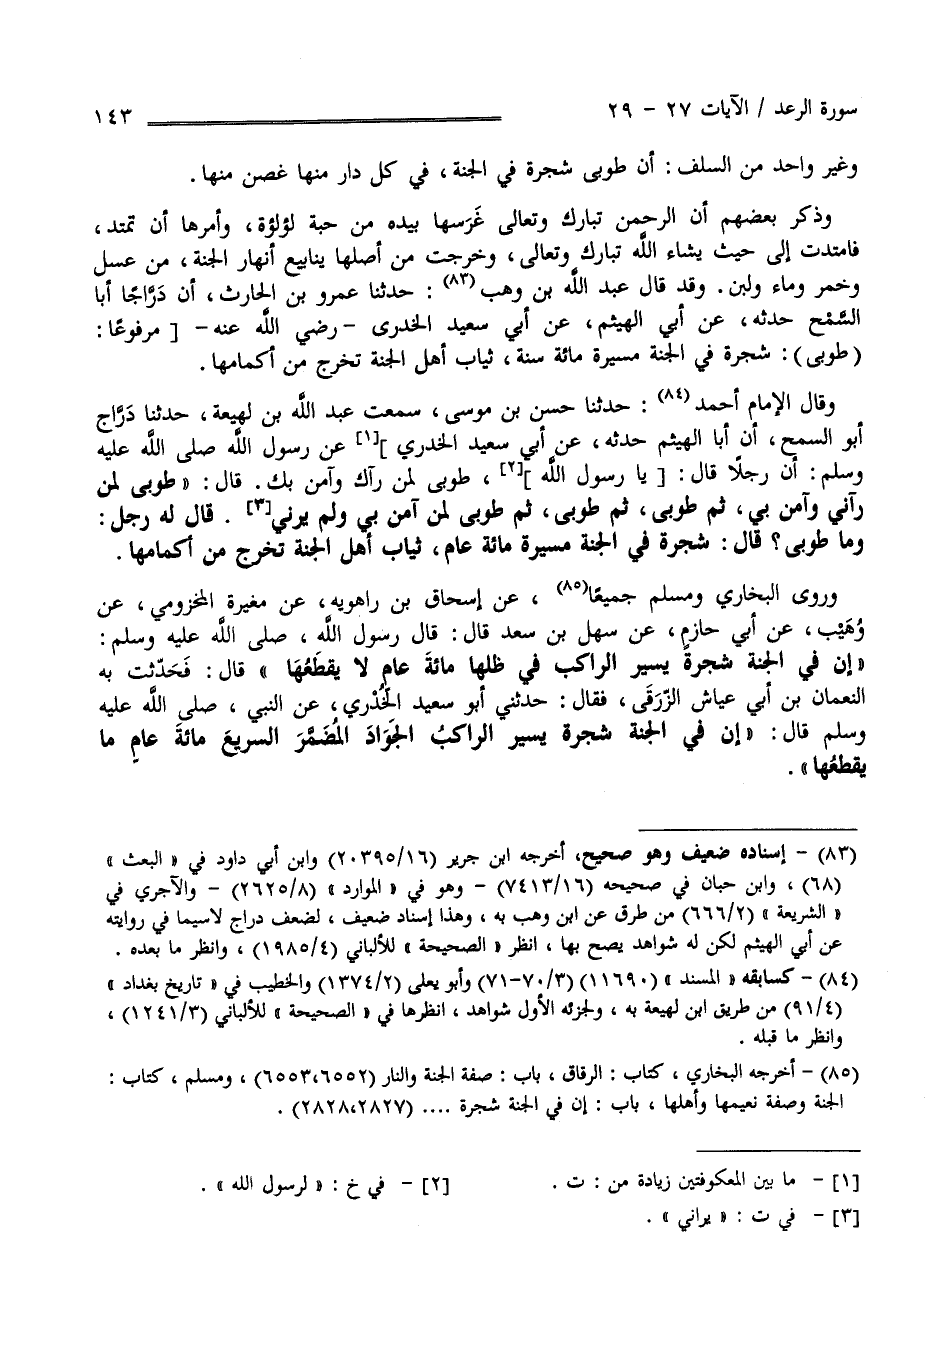 سورة الرعد / الآيات ٢٧ - ٢٩
١٤٣
وغير واحد من السلف : أن طوبى شجرة في الجنة ، في كل دار منها غصن منها .
وذكر بعضهم أن الرحمن تبارك وتعالى غَرَسها بيده من حبة لؤلؤة ، وأمرها أن تمتد ،
فامتدت إلى حيث يشاء اللَّه تبارك وتعالى ، وخرجت من أصلها ينابيع أنهار الجنة ، من عسل
وخمر وماء ولبن . وقد قال عبد اللَّه بن وهب(٨٣) : حدثنا عمرو بن الحارث ، أن دَرَّاجًا أبا
السَّمْح حدثه ، عن أبي الهيثم ، عن أبي سعيد الخدرى -رضي اللَّه عنه- [ مرفوعًا :
(طوبى) : شجرة في الجنة مسيرة مائة سنة ، ثياب أهل الجنة تخرج من أكمامها .
وقال الإمام أحمد(٨٤) : حدثنا حسن بن موسى ، سمعت عبد اللَّه بن لهيعة ، حدثنا دَرَّاج
أبو السمح ، أن أبا الهيثم حدثه ، عن أبي سعيد الخدري ][١] عن رسول اللَّه صلى اللَّه عليه
وسلم : أن رجلًا قال : [ يا رسول اللَّه ][٢] ، طوبى لمن رآك وآمن بك . قال : « طوبى لمن
رآني وآمن بي ، ثم طوبى ، ثم طوبى ، ثم طوبى لمن آمن بي ولم يرني[٣] . قال له رجل :
وما طوبى ؟ قال : شجرة في الجنة مسيرة مائة عام ، ثياب أهل الجنة تخرج من أكمامها .
وروى البخاري ومسلم جميعًا(٨٥) ، عن إسحاق بن راهويه ، عن مغيرة المخزومي ، عن
وُهَيْب ، عن أبي حازم ، عن سهل بن سعد قال : قال رسول اللَّه ، صلى اللَّه عليه وسلم :
« إن في الجنة شجرةً يسير الراكب في ظلها مائةَ عام لا يقطَعُهَا » قال : فَحَدّثت به
النعمان بن أبي عياش الزّرَقَى ، فقال : حدثني أبو سعيد الخُدْري ، عن النبي ، صلى اللَّه عليه
وسلم قال : « إن في الجنة شجرة يسير الراكبُ الجَوَادَ المُضَمَّرَ السريعَ مائةَ عامٍ ما
يقطعُها » .
(٨٣) - إسناده ضعيف وهو صحيح، أخرجه ابن جرير (٢٠٣٩٥/١٦) وابن أبي داود في « البعث »
(٦٨) ، وابن حبان في صحيحه (٧٤١٣/١٦) - وهو في « الموارد » (٢٦٢٥/٨) - والآجري في
« الشريعة » (٦٦٦/٢) من طرق عن ابن وهب به ، وهذا إسناد ضعيف ، لضعف دراج لاسيما في روايته
عن أبي الهيثم لكن له شواهد يصح بها ، انظر « الصحيحة » للألباني (١٩٨٥/٤) ، وانظر ما بعده .
(٨٤) - كسابقه « المسند » (١١٦٩٠) (٧٠/٣-٧١) وأبو يعلى (١٣٧٤/٢) والخطيب في « تاريخ بغداد »
(٩١/٤) من طريق ابن لهيعة به ، ولجزئه الأول شواهد ، انظرها في « الصحيحة » للألباني (١٢٤١/٣) ،
وانظر ما قبله .
(٨٥) - أخرجه البخاري ، كتاب : الرقاق ، باب : صفة الجنة والنار (٦٥٥٢،٦٥٥٣) ، ومسلم ، كتاب :
الجنة وصفة نعيمها وأهلها ، باب : إن في الجنة شجرة .... (٢٨٢٧،٢٨٢٨) .
[١] - ما بين المعكوفتين زيادة من : ت .
[٢] - في خ : « لرسول الله » .
[٣] - في ت : « يراني » .